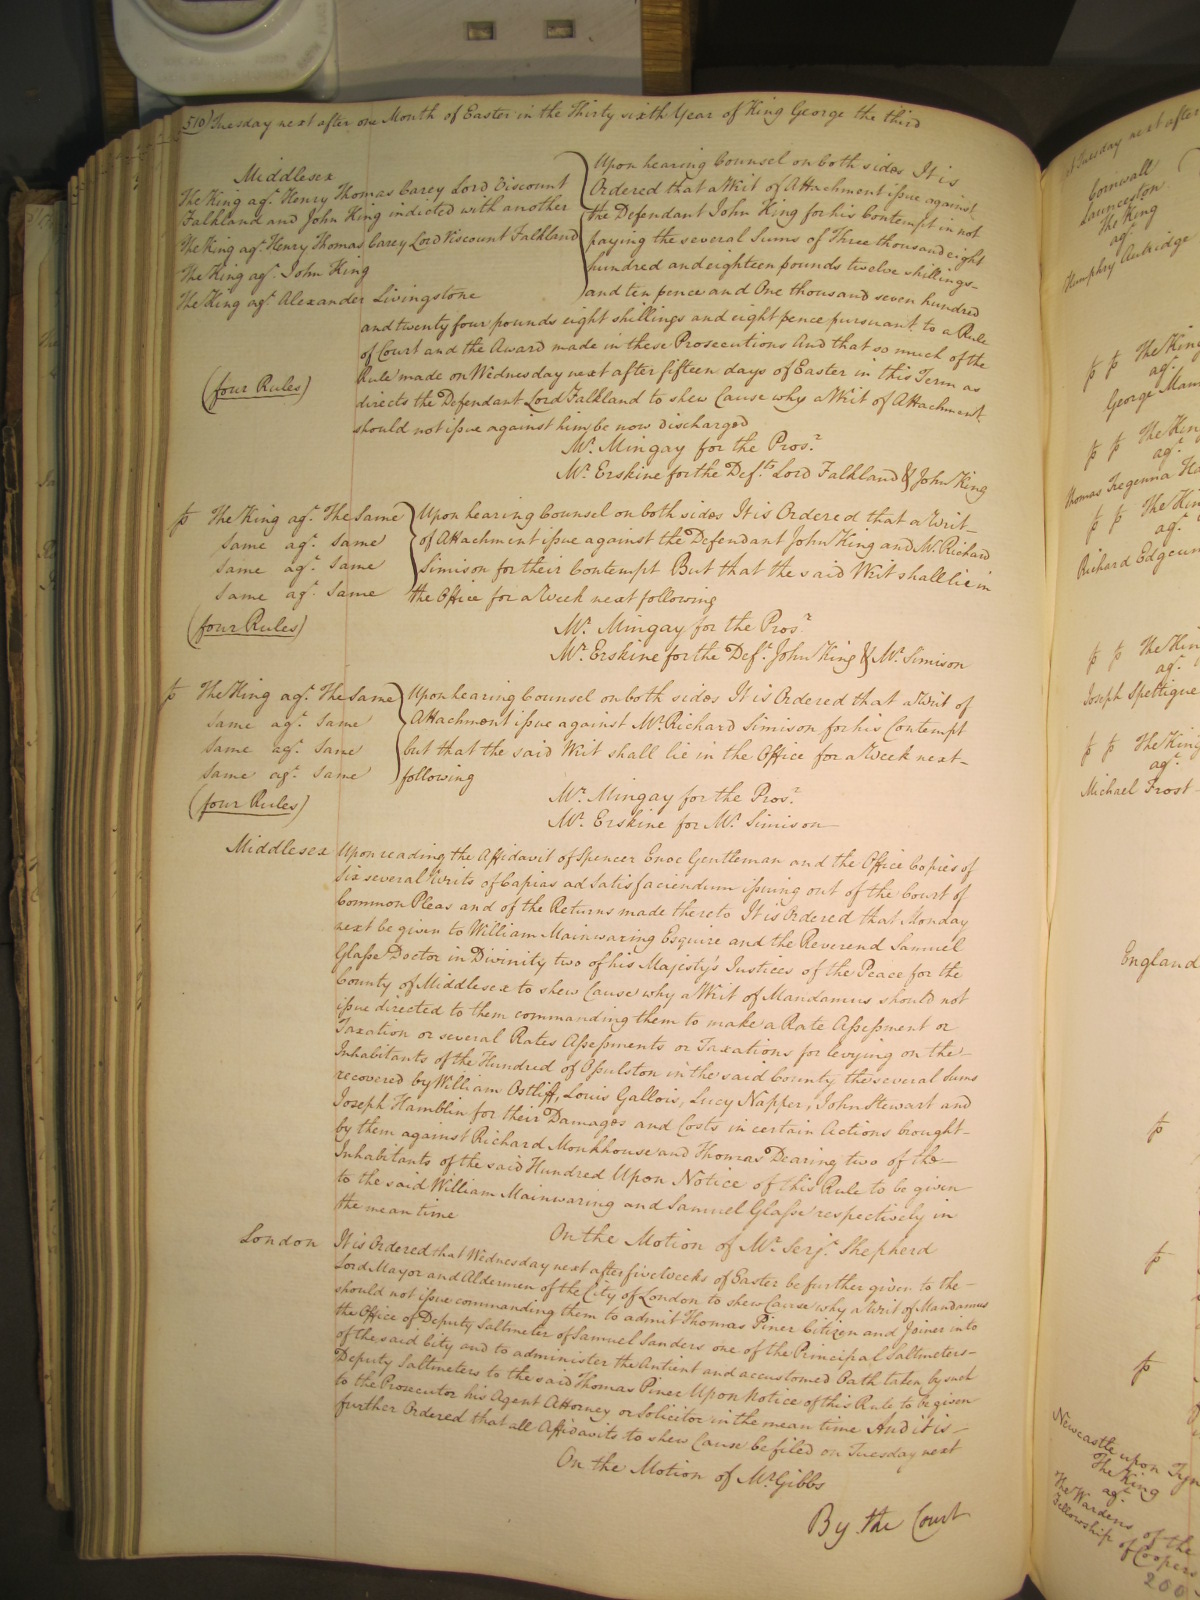 510) Tuesday next after one Month of Easter in the Thirty sixth Year of King George the third
Middlesex
The King agt. Henry Thomas Carey Lord Viscount
Falkland and John King indicted with another
The King agt. Henry Thomas Carey Lord Viscount Falkland
The King agt. John King
The King agt. Alexander Livingstone
(four Rules)
Upon hearing Counsel on both sides It is
Ordered that a Writ of Attachment issue against
the Defendant John King for his Contempt in not
paying the several Sums of Three thousand eight
hundred and eighteen pounds twelve shillings
and ten pence and One thousand seven hundred
and twenty four pounds eight shillings and eight pence pursuant to a Rule
of Court and the Award made in these Prosecutions And that so much of the
Rule made on Wednesday next after fifteen days of Easter in this Term as
directs the Defendant Lord Falkland to shew Cause why a Writ of Attachment
should not issue against him be now discharged
Mr. Mingay for the Prosr.
Mr. Erskine for the Defts. Lord Falkland & John King
The King agt. The Same
Same agt. Same
Same agt. Same
Same agt. Same
(four Rules)
Upon hearing Counsel on both sides It is Ordered that a Writ
of Attachment issue against the Defendant John King and Mr. Richard
Simison for their Contempt But that the said Writ shall lie in
the Office for a Week next following
Mr. Mingay for the Prosr.
Mr. Erskine for the Deft. John King & Mr. Simison
The King agt. The Same
Same agt. Same
Same agt. Same
Same agt. Same
(four Rules)
Upon hearing Counsel on both sides It is Ordered that a Writ of
Attachment issue against Mr. Richard Simison for his Contempt
but that the said Writ shall lie in the Office for a Week next
following
Mr. Mingay for the Prosr.
Mr. Erskine for Mr. Simison
Middlesex
Upon reading the Affidavit of Spencer Enoe Gentleman and the Office Copies of
six several Writs of Capias ad Satisfaciendum issuing out of the Court of
Common Pleas and of the Returns made thereto It is Ordered that Monday
next be given to William Mainwaring Esquire and the Reverend Samuel
Glasse Doctor in Divinity two of his Majesty's Justices of the Peace for the
County of Middlesex to shew Cause why a Writ of Mandamus should not
issue directed to them commanding them to make a Rate Assessment or
Taxation or several Rates Assessments or Taxations for levying on the
Inhabitants of the Hundred of Ossulston in the said County the several Sums
recovered by William Ostliff, Louis Gallois, Lucy Napper, John Stewart and
Joseph Hamblin for their Damages and Costs in certain Actions brought
by them against Richard Monkhouse and Thomas Dearing two of the
Inhabitants of the said Hundred Upon Notice of this Rule to be given
to the said William Mainwaring and Samuel Glasse respectively in
the mean time
On the Motion of Mr. Serjt. Shepherd
London
It is Ordered that Wednesday next after five Weeks of Easter be further given to the
Lord Mayor and Aldermen of the City of London to shew Cause why a Writ of Mandamus
should not issue commanding them to admit Thomas Piner Citizen and Joiner into
the Office of Deputy Saltmeter of Samuel Sanders one of the Principal Saltmeters
of the said City and to administer the Antient and accustomed Oath taken by such
Deputy Saltmeters to the said Thomas Piner Upon Notice of this Rule to be given
to the Prosecutor his Agent Attorney or Solicitor in the mean time And it is
further Ordered that all Affidavits to shew Cause be filed on Tuesday next
On the Motion of Mr. Gibbs
By the Court
Tuesday next after
Cornwall
Launceston
The King
agt.
Humphry
The King
agt.
George
The King
agt.
Thomas Tregenna
agt.
Richard
The
agt.
Joseph Spettigue
The King
agt.
Michael Frost
England
Newcastle upon
The King
agt.
The Wardens of the
Fellowship of Coopers
200